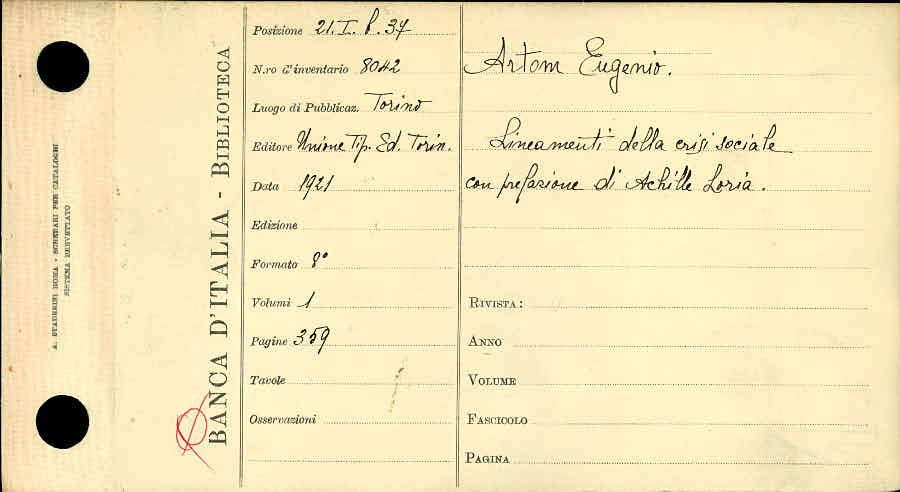 A. STADERINI ROMA - SCHEDARI PER CATALOGHI
SISTEMA BREVETTATO
BANCA D'ITALIA - BIBLIOTECA
Posizione 21. I. b. 37
N.ro d'inventario 8042
Luogo di Pubblicaz. Torino
Editore Unione Tip. Ed. Torin.
Data 1921
Edizione
Formato 8°
Volumi 1
Pagine 359
Tavole
Osservazioni
Artom Eugenio.
Lineamenti della crisi sociale
con prefazione di Achille Loria.
RIVISTA:
ANNO
VOLUME
FASCICOLO
PAGINA